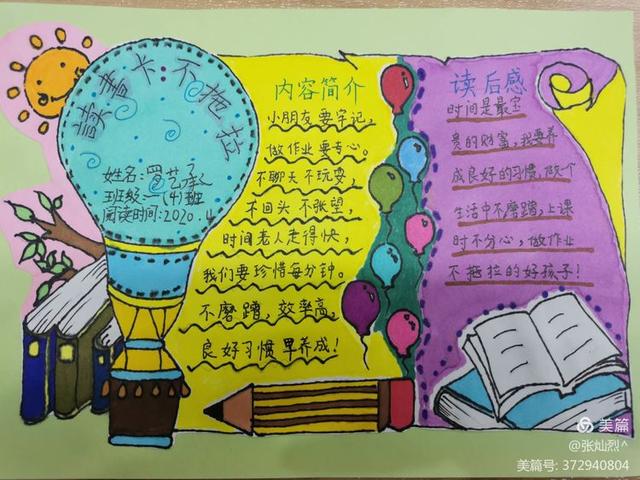 读书卡:不拖拉
姓名:罗艺承
班级:一(4)班
阅读时间:2020.4
内容简介
小朋友要牢记,
做作业要专心。
不聊天不玩耍,
不回头不张望,
时间老人走得快,
我们要珍惜每分钟。
不磨蹭,效率高,
良好习惯早养成!
读后感
时间是最宝
贵的财富,我要养
成良好的习惯,做个
生活中不磨蹭,上课
时不分心,做作业
不拖拉的好孩子!
美篇
@张灿烈^
美篇号: 372940804